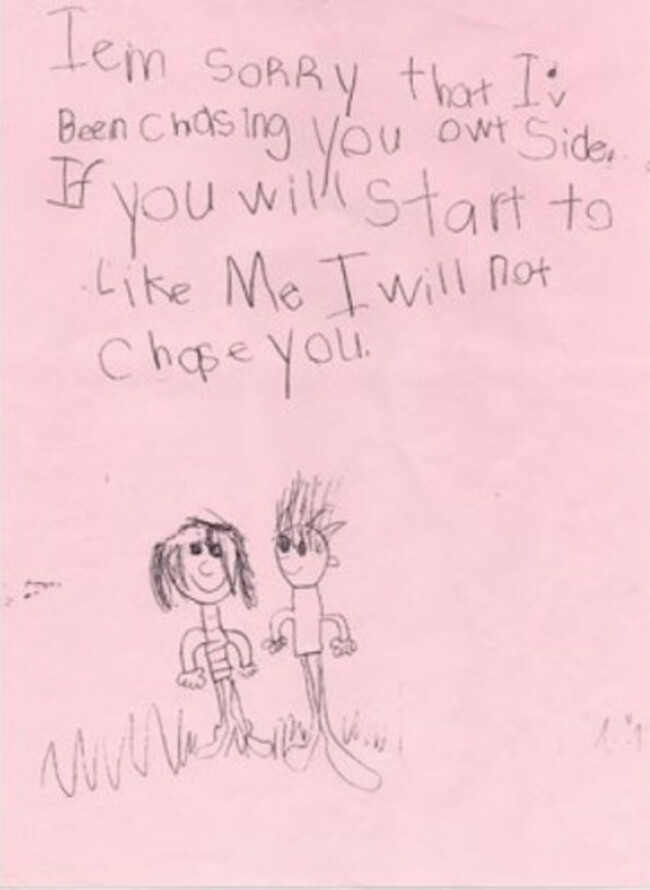 Iem SORRY that I'v
Been chasing you owt Side.
If you will Start to
Like Me I will not
Chase you.